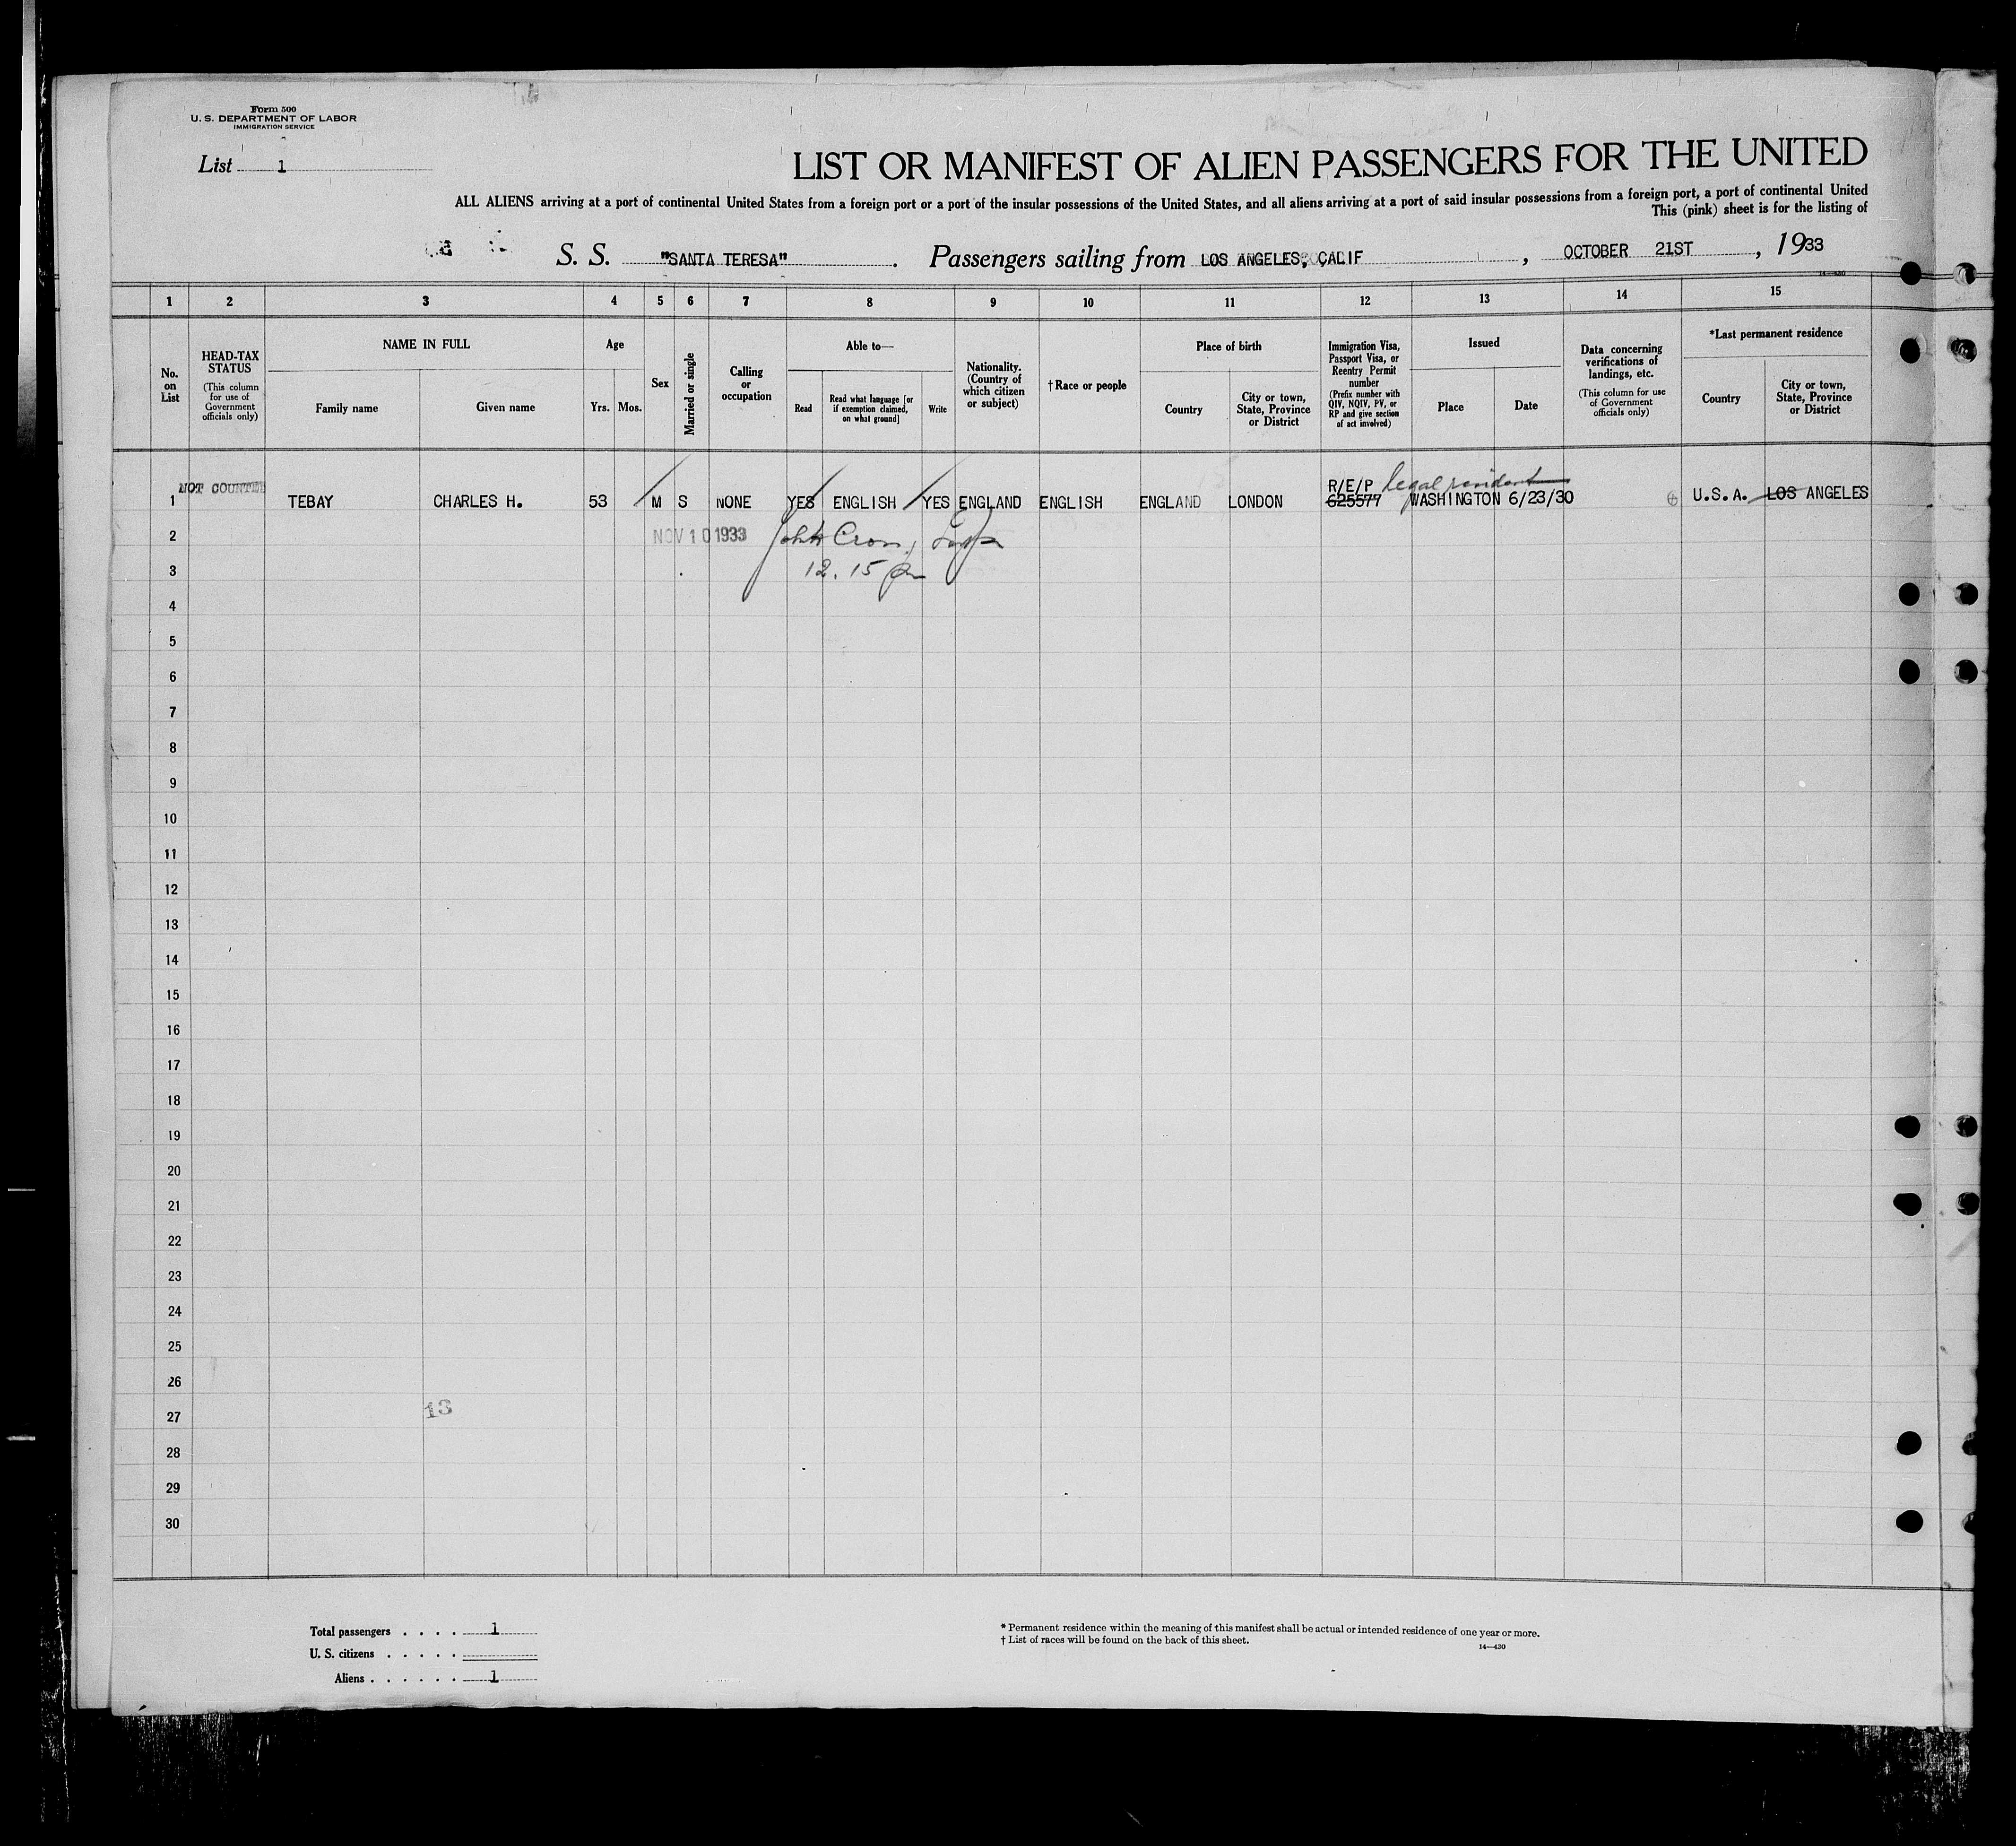 Form 500
U. S. DEPARTMENT OF LABOR
IMMIGRATION SERVICE
List 1
LIST OR MANIFEST OF ALIEN PASSENGERS FOR THE UNITED
ALL ALIENS arriving at a port of continental United States from a foreign port or a port of the insular possessions of the United States, and all aliens arriving at a port of said insular possessions from a foreign port, a port of continental United
This (pink) sheet is for the listing of
S. S. "SANTA TERESA" . Passengers sailing from LOS ANGELES, CALIF , OCTOBER 21ST , 1933
14—430
1 2 3 4 5 6 7 8 9 10 11 12 13 14 15
No. on List
HEAD-TAX STATUS
(This column for use of Government officials only)
NAME IN FULL
Family name
Given name
Age
Yrs.
Mos.
Sex
Married or single
Calling or occupation
Able to—
Read
Read what language [or if exemption claimed, on what ground]
Write
Nationality. (Country of which citizen or subject)
†Race or people
Place of birth
Country
City or town, State, Province or District
Immigration Visa, Passport Visa, or Reentry Permit number
(Prefix number with QIV, NQIV, PV, or RP and give section of act involved)
Issued
Place
Date
Data concerning verifications of landings, etc.
(This column for use of Government officials only)
*Last permanent residence
Country
City or town, State, Province or District
NOT COUNTED
R/E/P legal resident
1 TEBAY CHARLES H. 53 M S NONE YES ENGLISH YES ENGLAND ENGLISH ENGLAND LONDON 625577 WASHINGTON 6/23/30 U.S.A. LOS ANGELES
2 NOV 10 1933 John Cron, Insp
3 12.15 pm
4
5
6
7
8
9
10
11
12
13
14
15
16
17
18
19
20
21
22
23
24
25
26
27 13
28
29
30
Total passengers . . . . 1
U. S. citizens . . . . .
Aliens . . . . . . 1
* Permanent residence within the meaning of this manifest shall be actual or intended residence of one year or more.
† List of races will be found on the back of this sheet.
14—430